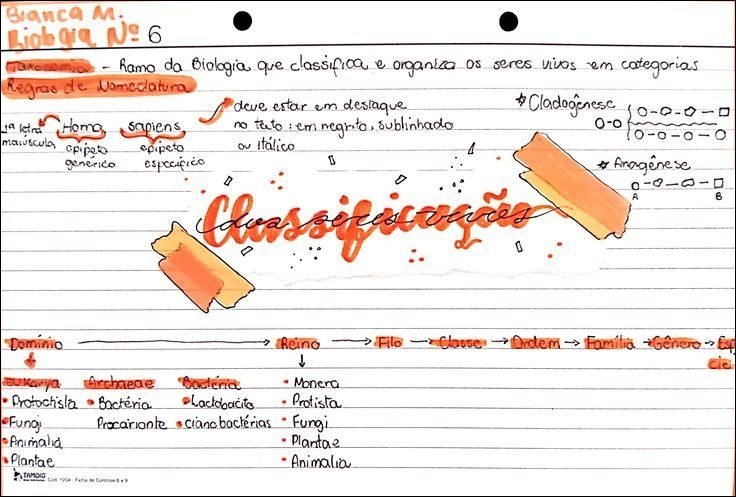 Bianca M.
Biologia Nº 6
Taxonomia - Ramo da Biologia que classifica e organiza os seres vivos em categorias
Regras de Nomeclatura
1ª letra maiúscula
Homo sapiens
epípeto genérico
epípeto específico
deve estar em destaque
no texto: em negrito, sublinhado
ou itálico
* Cladogênese
* Anagênese
A B
Classificação
dos seres vivos
Domínio → Reino → Filo → Classe → Ordem → Família → Gênero → Espécie
Eukarya Archaeae Bactéria
• Protoctista • Bactéria • Lactobacilo
• Fungi Procarionte • cianobactérias
• Animalia
• Plantae
• Monera
• Protista
• Fungi
• Plantae
• Animalia
TAMOIO Cód. 1204 - Ficha de Controle 6 x 9